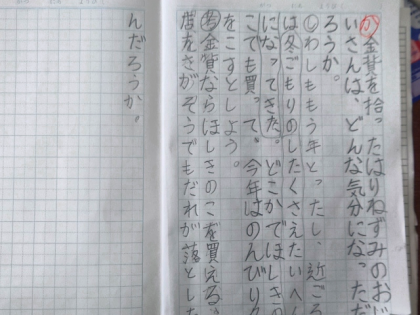 か金貨を拾ったはりねずみのおじ
いさんは、どんな気分になっただ
ろうか。
しわしももう年とったし、近ごろ
は冬ごもりのしたくさえたいへ
になってきた。どこかでほしきの
こでも買って、今年はのんびり
をこすとしよう。
金貨ならほしきのこを買える、
店をさがそうでもだれが落とした
んだろうか。